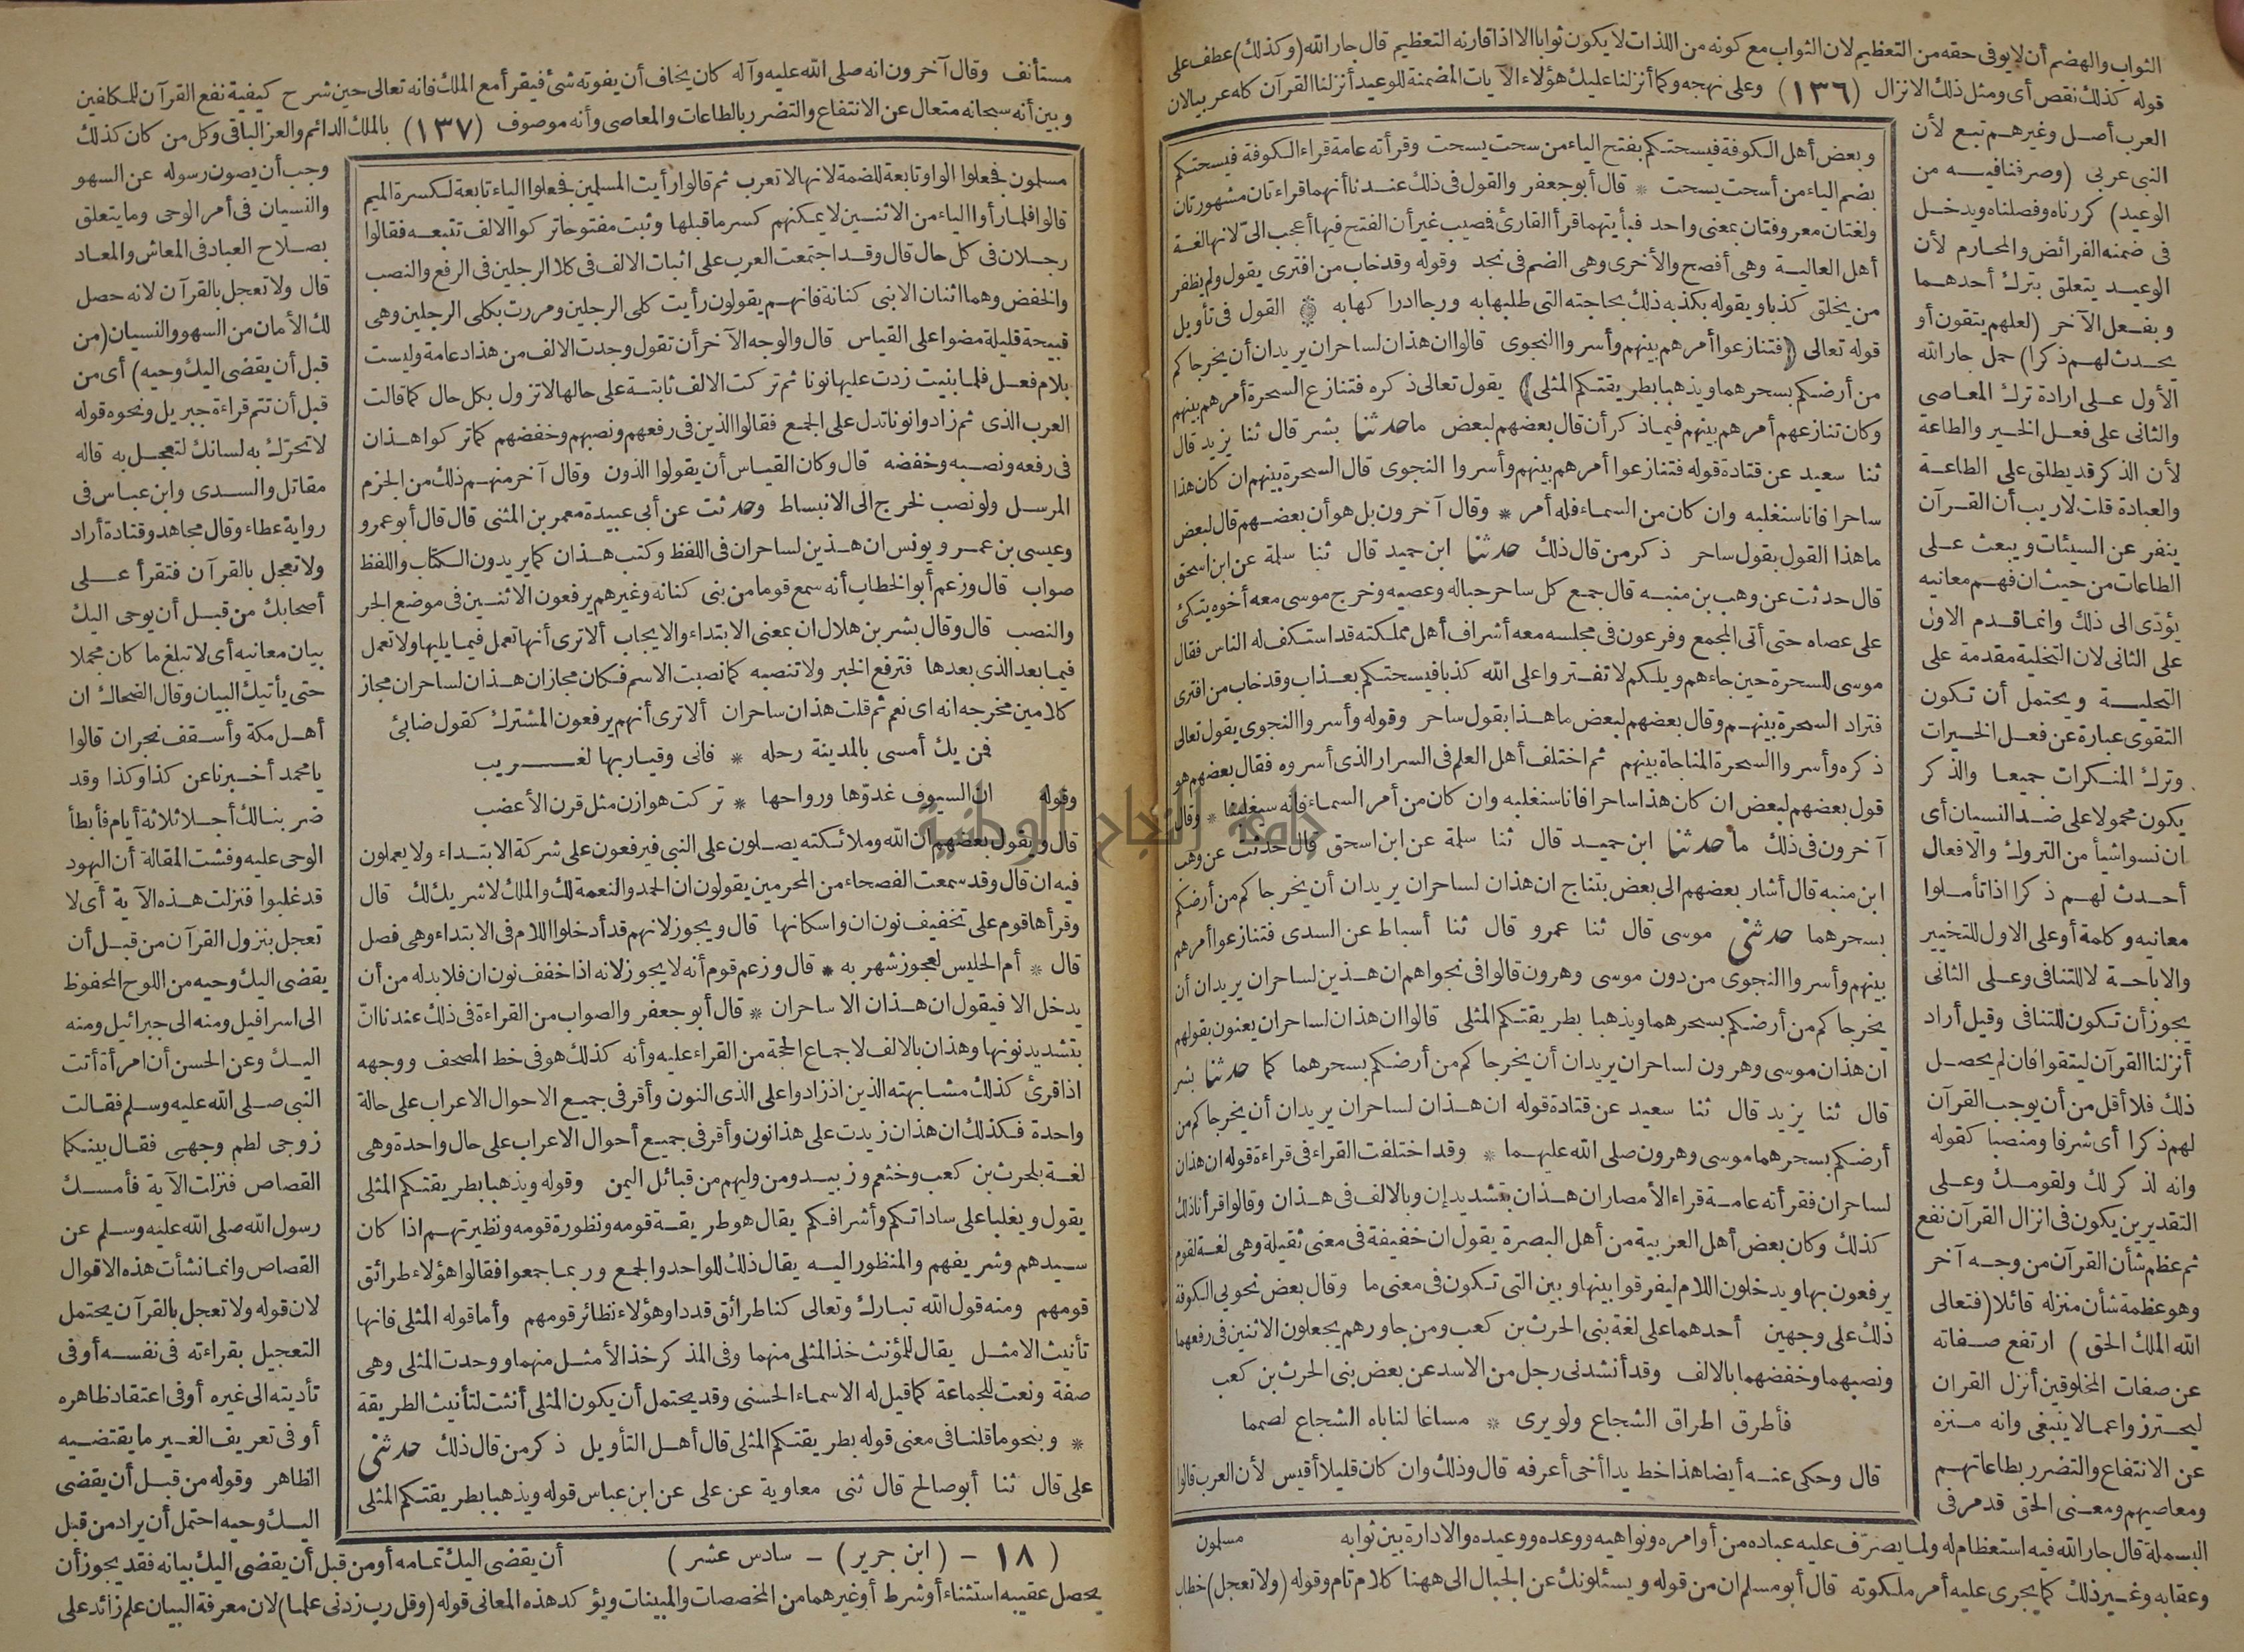 الثواب والهضم أن لا يوفى حقه من التعظيم لان الثواب مع كونه من اللذات لا يكون ثوابا الا اذا قارنه التعظيم قال جار الله (وكذلك) عطف على
قوله كذلك نقص أى ومثل ذلك الانزال (١٣٦) وعلى نهجه وكما أنزلنا عليك هؤلاء الآيات المضمنة للوعيد أنزلنا القرآن كله عربيا لان
العرب أصل وغيرهم تبع لأن
النبى عربى (وصرفنا فيه من
الوعيد) كررناه وفصلناه ويدخل
فى ضمنه الفرائض والمحارم لأن
الوعيد يتعلق بترك أحدهما
وبفعل الآخر (لعلهم يتقون أو
يحدث لهم ذكرا) حمل جار الله
الأول على ارادة ترك المعاصى
والثانى على فعل الخير والطاعة
لأن الذكر قد يطلق على الطاعة
والعبادة قلت لا ريب أن القرآن
ينفر عن السيئات ويبعث على
الطاعات من حيث ان فهم معانيه
يؤدى الى ذلك وانما قدم الاول
على الثانى لان التخلية مقدمة على
التحلية ويحتمل أن تكون
التقوى عبارة عن فعل الخيرات
وترك المنكرات جميعا والذكر
يكون محمولا على ضد النسيان أى
ان نسوا شيأ من التروك والافعال
أحدث لهم ذكرا اذا تأملوا
معانيه وكلمة أو على الاول للتخيير
والاباحة لا للتنافى وعلى الثانى
يجوز أن تكون للتنافى وقيل أراد
أنزلنا القرآن ليتقوا فان لم يحصل
ذلك فلا أقل من أن يوجب القرآن
لهم ذكرا أى شرفا ومنصبا كقوله
وانه لذكر لك ولقومك وعلى
التقديرين يكون فى انزال القرآن نفع
ثم عظم شأن القرآن من وجه آخر
وهو عظمة شأن منزله قائلا (فتعالى
الله الملك الحق) ارتفع صفاته
عن صفات المخلوقين أنزل القران
ليحترزوا عما لا ينبغى وانه منزه
عن الانتفاع والتضرر بطاعاتهم
ومعاصيهم ومعنى الحق قد مر فى
وبعض أهل الكوفة فيسحتكم بفتح الياء من سحت يسحت وقرأته عامة قراء الكوفة فيسحتكم
بضم الياء من أسحت يسحت * قال أبو جعفر والقول فى ذلك عندنا أنهما قراءتان مشهورتان
ولغتان معروفتان بمعنى واحد فبأيتهما قرأ القارئ فمصيب غير أن الفتح فيها أعجب الىّ لانها لغة
أهل العالية وهى أفصح والأخرى وهى الضم فى نجد وقوله وقد خاب من افترى يقول ولم يظفر
من يخلق كذبا ويقوله بكذبه ذلك بحاجته التى طلبها به ورجا ادراكها به * القول فى تأويل
قوله تعالى (فتنازعوا أمرهم بينهم وأسروا النجوى قالوا ان هذان لساحران يريدان أن يخرجاكم
من أرضكم بسحرهما ويذهبا بطريقتكم المثلى) يقول تعالى ذكره فتنازع السحرة أمرهم بينهم
وكان تنازعهم أمرهم بينهم فيما ذكر أن قال بعضهم لبعض ما حدثنا بشر قال ثنا يزيد قال
ثنا سعيد عن قتادة قوله فتنازعوا أمرهم بينهم وأسروا النجوى قال السحرة بينهم ان كان هذا
ساحرا فانا سنغلبه وان كان من السماء فله أمر * وقال آخرون بل هو أن بعضهم قال لبعض
ما هذا القول بقول ساحر ذكر من قال ذلك حدثنا ابن حميد قال ثنا سلمة عن ابن اسحق
قال حدثت عن وهب بن منبه قال جمع كل ساحر حباله وعصيه وخرج موسى معه أخوه يتكئ
على عصاه حتى أتى المجمع وفرعون فى مجلسه معه أشراف أهل مملكته قد استكف له الناس فقال
موسى للسحرة حين جاءهم ويلكم لا تفتروا على الله كذبا فيسحتكم بعذاب وقد خاب من افترى
فتراد السحرة بينهم وقال بعضهم لبعض ما هذا بقول ساحر وقوله وأسروا النجوى يقول تعالى
ذكره وأسروا السحرة المناجاة بينهم ثم اختلف أهل العلم فى السرار الذى أسروه فقال بعضهم هو
قول بعضهم لبعض ان كان هذا ساحرا فانا سنغلبه وان كان من أمر السماء فانه سيغلبنا * وقال
آخرون فى ذلك ما حدثنا ابن حميد قال ثنا سلمة عن ابن اسحق قال حدثت عن وهب
ابن منبه قال أشار بعضهم الى بعض بتناج ان هذان لساحران يريدان أن يخرجاكم من أرضكم
بسحرهما حدثنى موسى قال ثنا عمرو قال ثنا أسباط عن السدى فتنازعوا أمرهم
بينهم وأسروا النجوى من دون موسى وهرون قالوا فى نجواهم ان هذين لساحران يريدان أن
يخرجاكم من أرضكم بسحرهما ويذهبا بطريقتكم المثلى قالوا ان هذان لساحران يعنون بقولهم
ان هذان موسى وهرون لساحران يريدان أن يخرجاكم من أرضكم بسحرهما كما حدثنا بشر
قال ثنا يزيد قال ثنا سعيد عن قتادة قوله ان هذان لساحران يريدان أن يخرجاكم من
أرضكم بسحرهما موسى وهرون صلى الله عليهما * وقد اختلفت القراء فى قراءة قوله ان هذان
لساحران فقرأته عامة قراء الأمصار ان هذان بتشديد إن وبالالف فى هذان وقالوا قرأنا ذلك
كذلك وكان بعض أهل العربية من أهل البصرة يقول ان خفيفة فى معنى ثقيلة وهى لغة لقوم
يرفعون بها ويدخلون اللام ليفرقوا بينها وبين التى تكون فى معنى ما وقال بعض نحويى الكوفة
ذلك على وجهين أحدهما على لغة بنى الحرث بن كعب ومن جاورهم يجعلون الاثنين فى رفعهما
ونصبهما وخفضهما بالالف وقد أنشدنى رجل من الاسد عن بعض بنى الحرث بن كعب
فأطرق اطراق الشجاع ولو يرى * مساغا لناباه الشجاع لصمما
قال وحكى عنه أيضا هذا خط يدا أخى أعرفه قال وذلك وان كان قليلا أقيس لأن العرب قالوا
مسلمون
البسملة قال جار الله فيه استعظام له ولما يصرّف عليه عباده من أوامره ونواهيه ووعده ووعيده والادارة بين ثوابه
وعقابه وغير ذلك كما يجرى عليه أمر ملكوته قال أبو مسلم ان من قوله ويسئلونك عن الجبال الى ههنا كلام تام وقوله (ولا تعجل) خطاب
مستأنف وقال آخرون انه صلى الله عليه وآله كان يخاف أن يفوته شئ فيقرأ مع الملك فانه تعالى حين شرح كيفية نفع القرآن للمكلفين
وبين أنه سبحانه متعال عن الانتفاع والتضرر بالطاعات والمعاصى وأنه موصوف (١٣٧) بالملك الدائم والعز الباقى وكل من كان كذلك
مسلمون فجعلوا الواو تابعة للضمة لانها لا تعرب ثم قالوا رأيت المسلمين فجعلوا الياء تابعة لكسرة الميم
قالوا فلما رأوا الياء من الاثنين لا يمكنهم كسر ما قبلها وثبت مفتوحا تركوا الالف تتبعه فقالوا
رجلان فى كل حال قال وقد اجتمعت العرب على اثبات الالف فى كلا الرجلين فى الرفع والنصب
والخفض وهما اثنان الا بنى كنانة فانهم يقولون رأيت كلى الرجلين ومررت بكلى الرجلين وهى
قبيحة قليلة مضوا على القياس قال والوجه الآخر أن تقول وجدت الالف من هذا دعامة وليست
بلام فعل فلما بنيت زدت عليها نونا ثم تركت الالف ثابتة على حالها لا تزول بكل حال كما قالت
العرب الذى ثم زادوا نونا تدل على الجمع فقالوا الذين فى رفعهم ونصبهم وخفضهم كما تركوا هذان
فى رفعه ونصبه وخفضه قال وكان القياس أن يقولوا الذون وقال آخر منهم ذلك من الجزم
المرسل ولو نصب لخرج الى الانبساط وحدثت عن أبى عبيدة معمر بن المثنى قال قال أبو عمرو
وعيسى بن عمر ويونس ان هذين لساحران فى اللفظ وكتب هذان كما يريدون الكتاب واللفظ
صواب قال وزعم أبو الخطاب أنه سمع قوما من بنى كنانة وغيرهم يرفعون الاثنين فى موضع الجر
والنصب قال وقال بشر بن هلال ان بمعنى الابتداء والايجاب ألا ترى أنها تعمل فيما يليها ولا تعمل
فيما بعد الذى بعدها فترفع الخبر ولا تنصبه كما نصبت الاسم فكان مجاز ان هذان لساحران مجاز
كلامين مخرجه انه اى نعم ثم قلت هذان ساحران ألا ترى أنهم يرفعون المشترك كقول ضابئ
فمن يك أمسى بالمدينة رحله * فانى وقيار بها لغريب
وقوله ان السيوف غدوّها ورواحها * تركت هوازن مثل قرن الأعضب
قال ويقول بعضهم ان الله وملائكته يصلون على النبى فيرفعون على شركة الابتداء ولا يعملون
فيه ان قال وقد سمعت الفصحاء من المحرمين يقولون ان الحمد والنعمة لك والملك لا شريك لك قال
وقرأها قوم على تخفيف نون ان واسكانها قال ويجوز لانهم قد أدخلوا اللام فى الابتداء وهى فصل
قال * أم الحليس لعجوز شهر به * قال وزعم قوم أنه لا يجوز لانه اذا خفف نون ان فلا بد له من أن
يدخل الا فيقول ان هذان الا ساحران * قال أبو جعفر والصواب من القراءة فى ذلك عندنا انّ
بتشديد نونها وهذان بالالف لاجماع الحجة من القراء عليه وأنه كذلك هو فى خط المصحف ووجهه
اذا قرئ كذلك مشابهته الذين اذ زادوا على الذى النون وأقر فى جميع الاحوال الاعراب على حالة
واحدة فكذلك ان هذان زيدت على هذا نون وأقر فى جميع أحوال الاعراب على حال واحدة وهى
لغة بلحرث بن كعب وخثعم وزبيد ومن وليهم من قبائل اليمن وقوله ويذهبا بطريقتكم المثلى
يقول ويغلبا على ساداتكم وأشرافكم يقال هو طريقة قومه ونظورة قومه ونظيرتهم اذا كان
سيدهم وشريفهم والمنظور اليه يقال ذلك للواحد والجمع وربما جمعوا فقالوا هؤلاء طرائق
قومهم ومنه قول الله تبارك وتعالى كنا طرائق قددا وهؤلاء نظائر قومهم وأما قوله المثلى فانها
تأنيث الامثل يقال للمؤنث خذ المثلى منهما وفى المذكر خذ الأمثل منهما ووحدت المثلى وهى
صفة ونعت للجماعة كما قيل له الاسماء الحسنى وقد يحتمل أن يكون المثلى أنثت لتأنيث الطريقة
* وبنحو ما قلنا فى معنى قوله بطريقتكم المثلى قال أهل التأويل ذكر من قال ذلك حدثنى
على قال ثنا أبو صالح قال ثنى معاوية عن على عن ابن عباس قوله ويذهبا بطريقتكم المثلى
وجب أن يصون رسوله عن السهو
والنسيان فى أمر الوحى وما يتعلق
بصلاح العباد فى المعاش والمعاد
قال ولا تعجل بالقرآن لانه حصل
لك الأمان من السهو والنسيان (من
قبل أن يقضى اليك وحيه) أى من
قبل أن تتم قراءة جبريل ونحوه قوله
لا تحرك به لسانك لتعجل به قاله
مقاتل والسدى وابن عباس فى
رواية عطاء وقال مجاهد وقتادة أراد
ولا تعجل بالقرآن فتقرأ على
أصحابك من قبل أن يوحى اليك
بيان معانيه أى لا تبلغ ما كان مجملا
حتى يأتيك البيان وقال الضحاك ان
أهل مكة وأسقف نجران قالوا
يا محمد أخبرنا عن كذا وكذا وقد
ضربنا لك أجلا ثلاثة أيام فأبطأ
الوحى عليه وفشت المقالة أن اليهود
قد غلبوا فنزلت هذه الآية أى لا
تعجل بنزول القرآن من قبل أن
يقضى اليك وحيه من اللوح المحفوظ
الى اسرافيل ومنه الى جبرائيل ومنه
اليك وعن الحسن أن امرأة أتت
النبى صلى الله عليه وسلم فقالت
زوجى لطم وجهى فقال بينكما
القصاص فنزلت الآية فأمسك
رسول الله صلى الله عليه وسلم عن
القصاص وانما نشأت هذه الاقوال
لان قوله ولا تعجل بالقرآن يحتمل
التعجيل بقراءته فى نفسه أو فى
تأديته الى غيره أو فى اعتقاد ظاهره
أو فى تعريف الغير ما يقتضيه
الظاهر وقوله من قبل أن يقضى
اليك وحيه احتمل أن يراد من قبل
(١٨ - (ابن جرير) - سادس عشر) أن يقضى اليك تمامه أو من قبل أن يقضى اليك بيانه فقد يجوز أن
يحصل عقيبه استثناء أو شرط أو غيرهما من المخصصات والمبينات ويؤكد هذه المعانى قوله (وقل رب زدنى علما) لان معرفة البيان علم زائد على
جامعة النجاح الوطنية